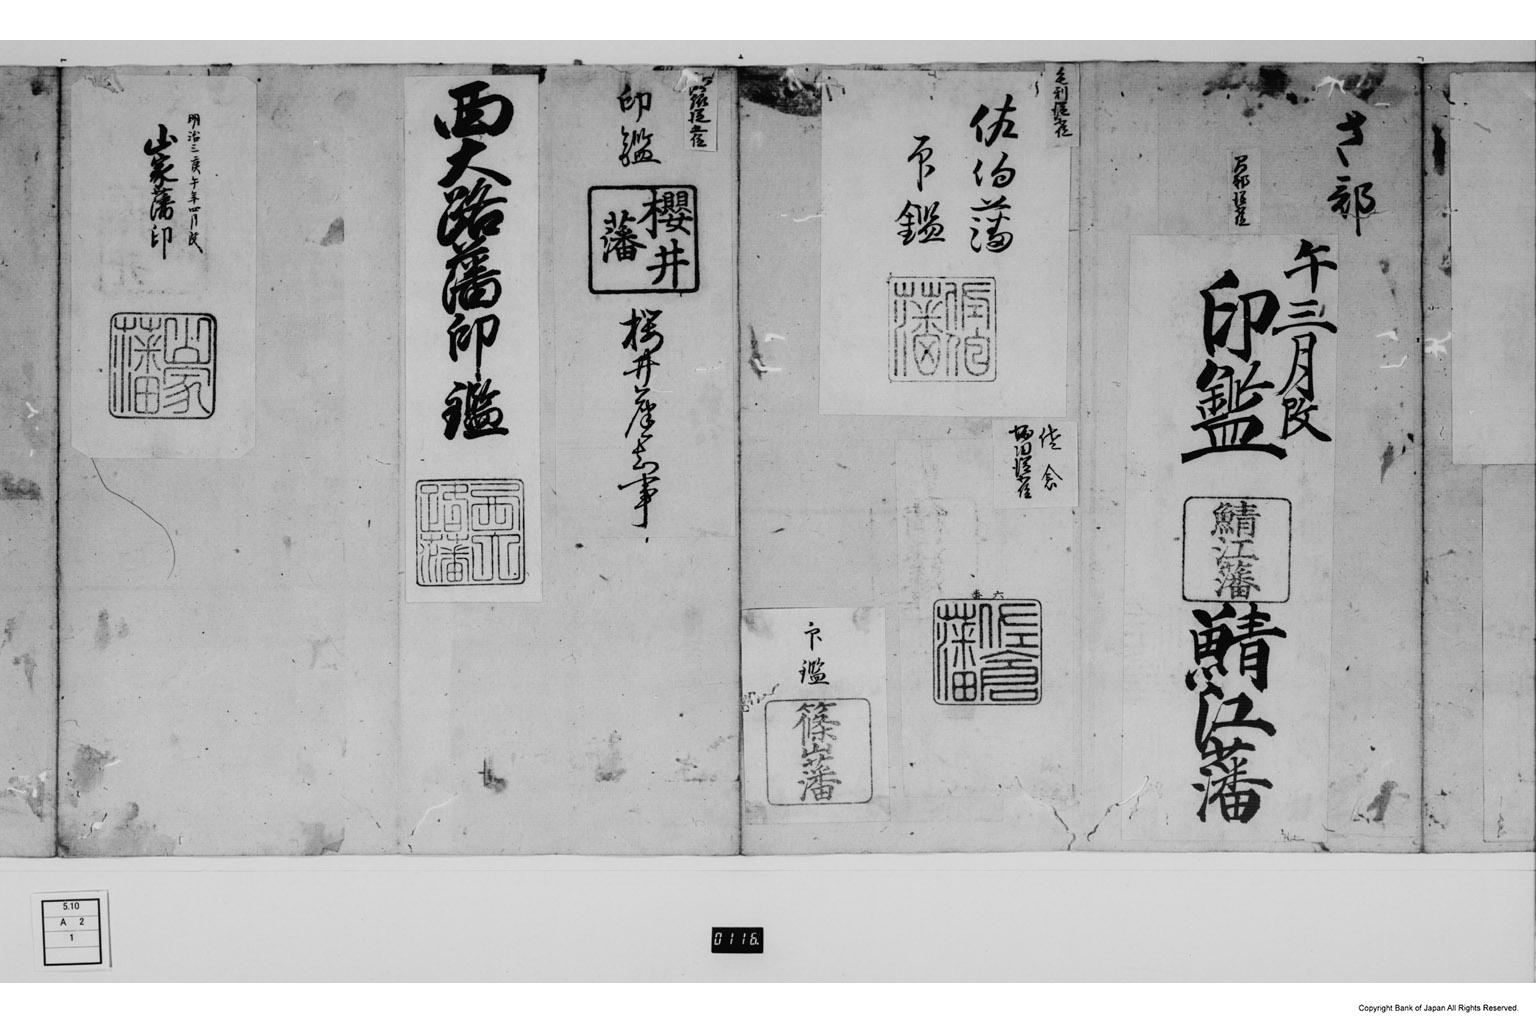 さ部
午三月改
印鑑
鯖江藩
鯖江藩
佐伯藩
印鑑
佐伯藩
佐倉
六番
佐倉藩
印鑑
篠山藩
印鑑
櫻井藩
桜井藩知事
西大路藩印鑑
西大路藩
明治三庚午年四月改
山家藩印
山家藩
5.10
A 2
1
0116.
Copyright Bank of Japan All Rights Reserved.